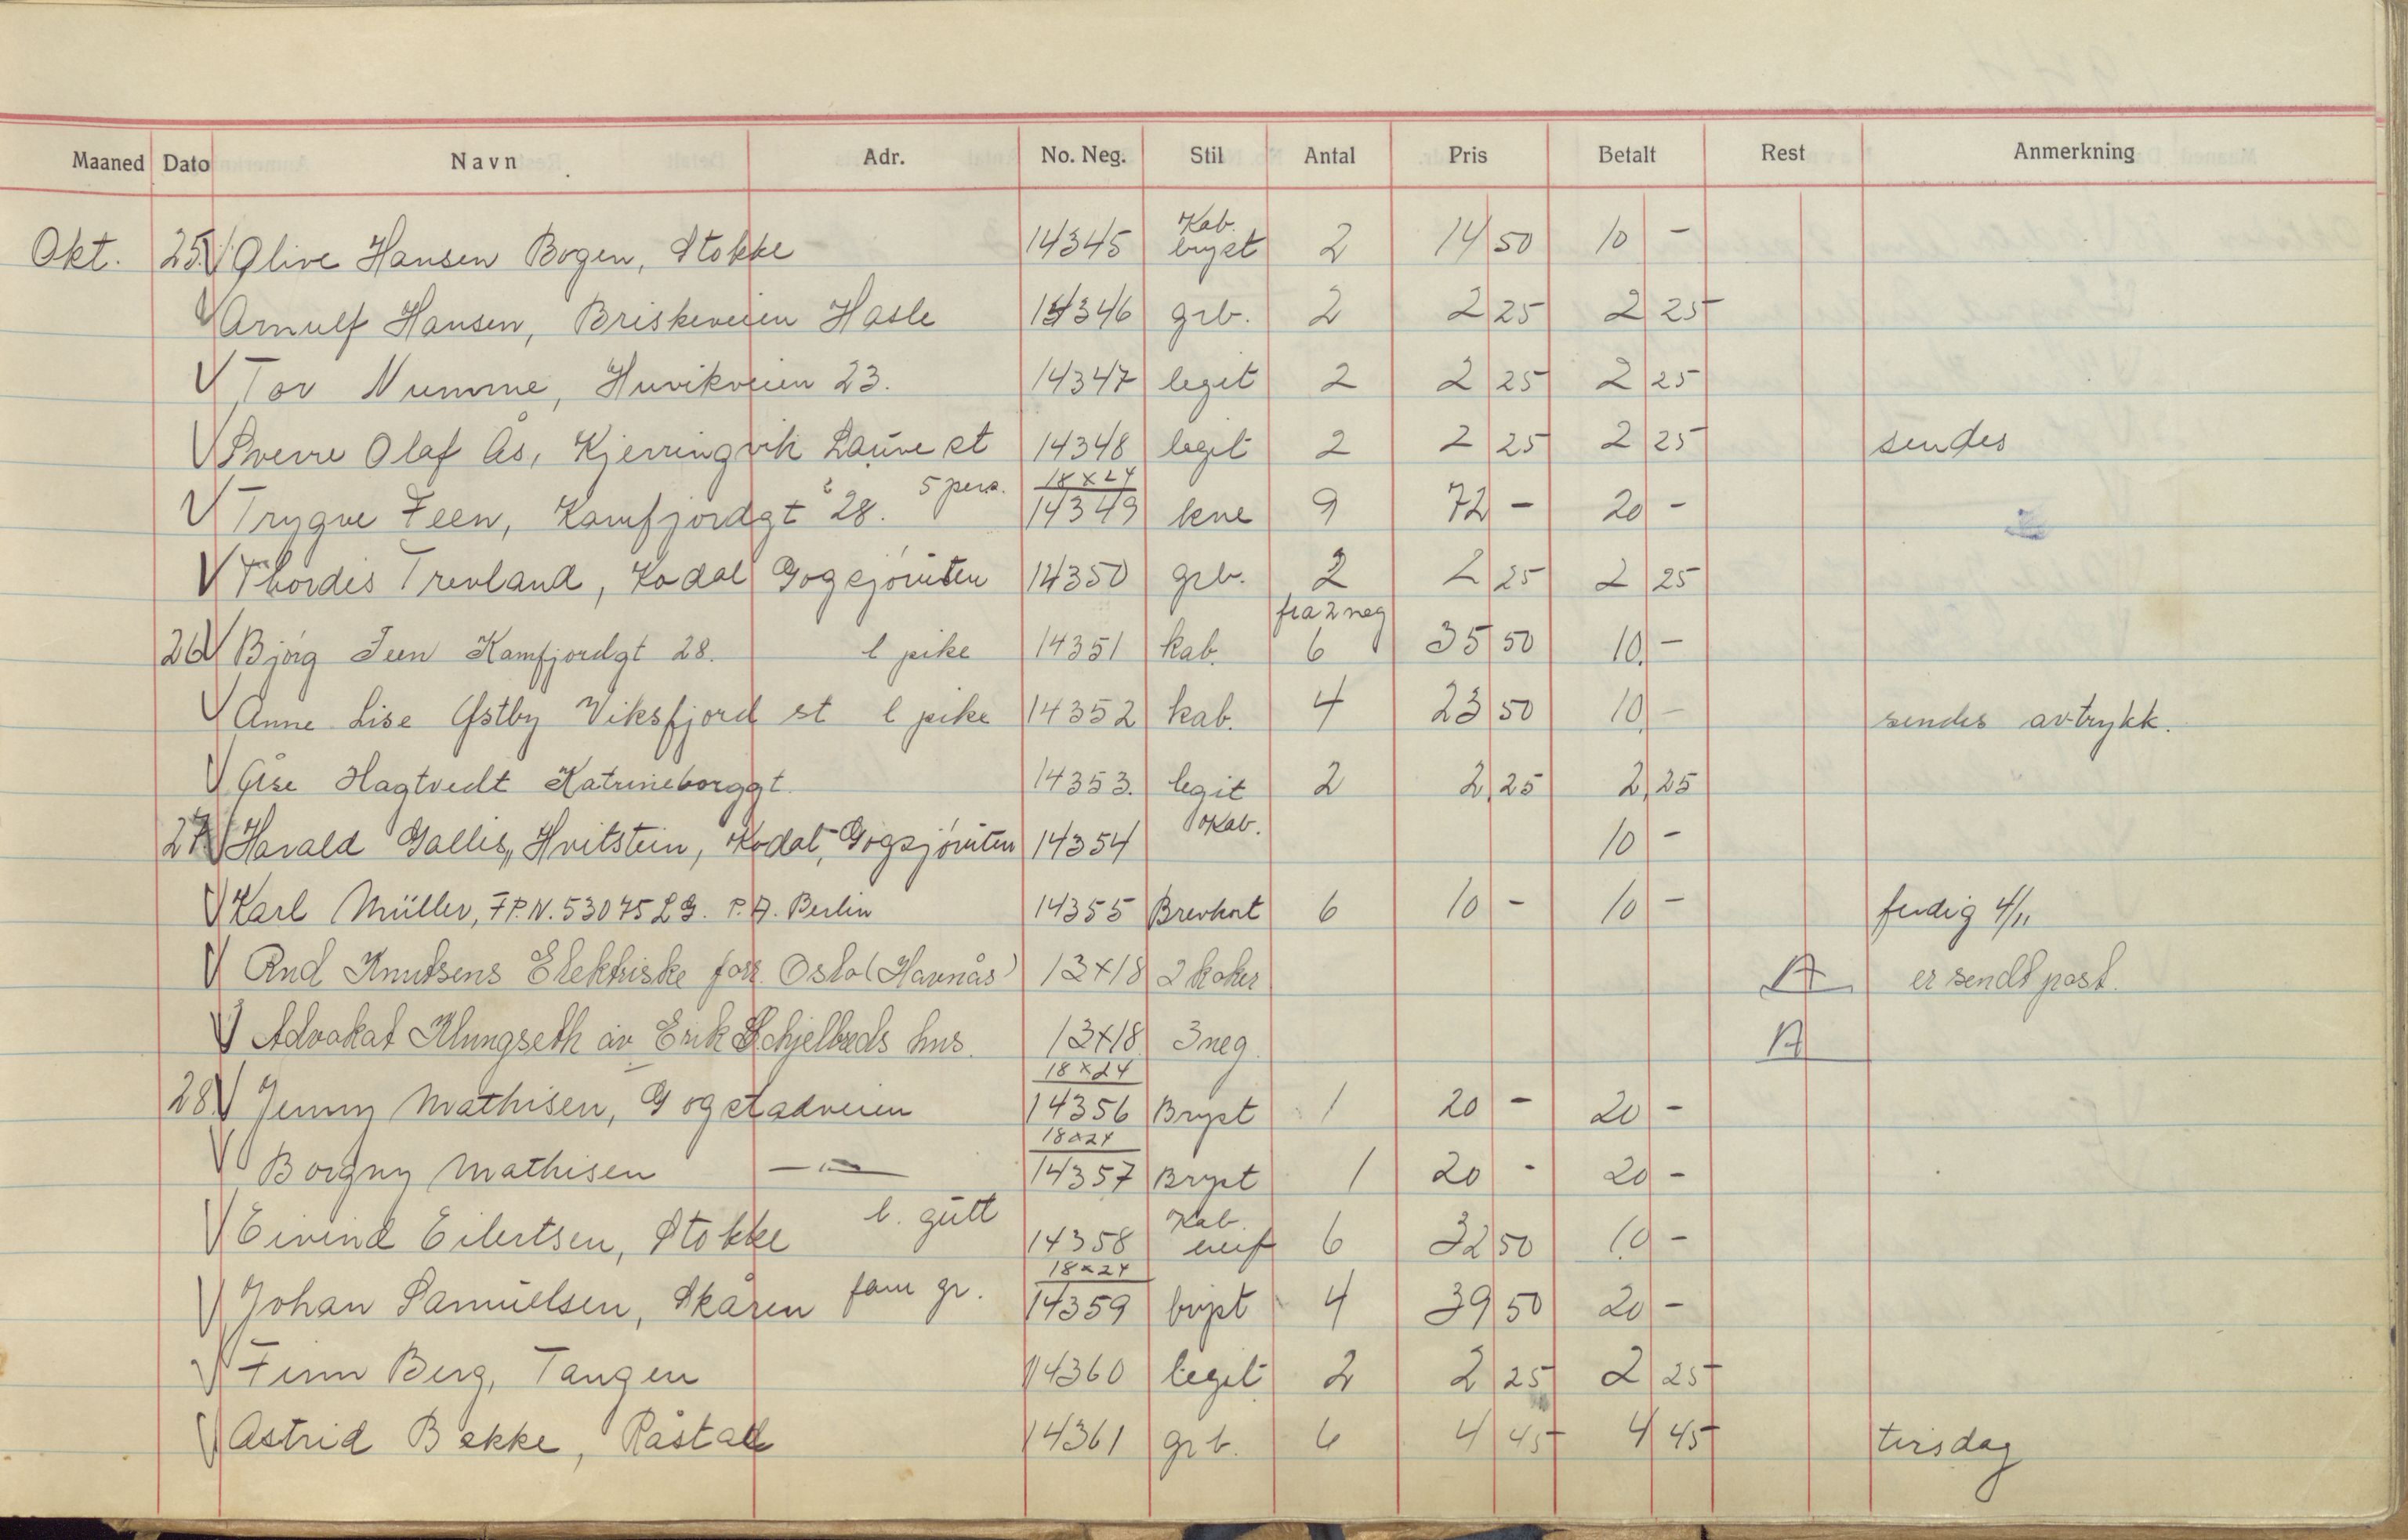 Maaned Dato Navn Adr. No. Neg. Stil Antal Pris Betalt Rest Anmerkning
Okt. 25. Olive Hansen Bogen, Stokke 14345 Kab. bryst 2 14 50 10 -
Arnulf Hansen, Briskeveien Hasle 14346 grb. 2 2 25 2 25
Tor Numme, Huvikveien 23. 14347 legit 2 2 25 2 25
Sverre Olaf Ås, Kjerringvik Lauve st 14348 legit 2 2 25 2 25 sendes
Trygve Feen, Kamfjordgt 28. 5 pers. 18x24 14349 kne 9 72 - 20 -
Thordis Trevland, Kodal Gogsjøruten 14350 grb. 2 2 25 2 25
26 Bjørg Feen Kamfjordgt 28. l pike 14351 kab. fra 2 neg 6 35 50 10. -
Anne Lise Østby Viksfjord st l pike 14352 kab. 4 23 50 10 - sendes avtrykk.
Åse Hagtvedt Katrineborggt. 14353. legit 2 2,25 2,25
27. Harald Gallis, Hvitstein, Kodal, Gogsjøruten 14354 Kab. 10 -
Karl Müller, F.P.N. 53075 L.G. P.A. Berlin 14355 Brevkort 6 10 - 10 - ferdig 4/11
Rnd Knutsens Elektriske forr. Oslo (Havnås) 13x18 2 koker A er sendt post.
Advokat Klungseth av Erik Schjelbreds hus. 13x18 3 neg. A
28. Jenny Mathisen, Gogstadveien 18x24 14356 Bryst 1 20 - 20 -
Borgny Mathisen —"— 18x24 14357 Bryst 1 20 - 20 -
Eivind Eilertsen, Stokke l. gutt 14358 Kab. 6 32 50 10 -
Johan Samuelsen, Skåren fam gr. 18x24 14359 bryst 4 39 50 20 -
Finn Berg, Tangen 14360 legit 2 2 25 2 25
Astrid Bakke, Råstad 14361 grb. 6 4 45 4 45 tirsdag